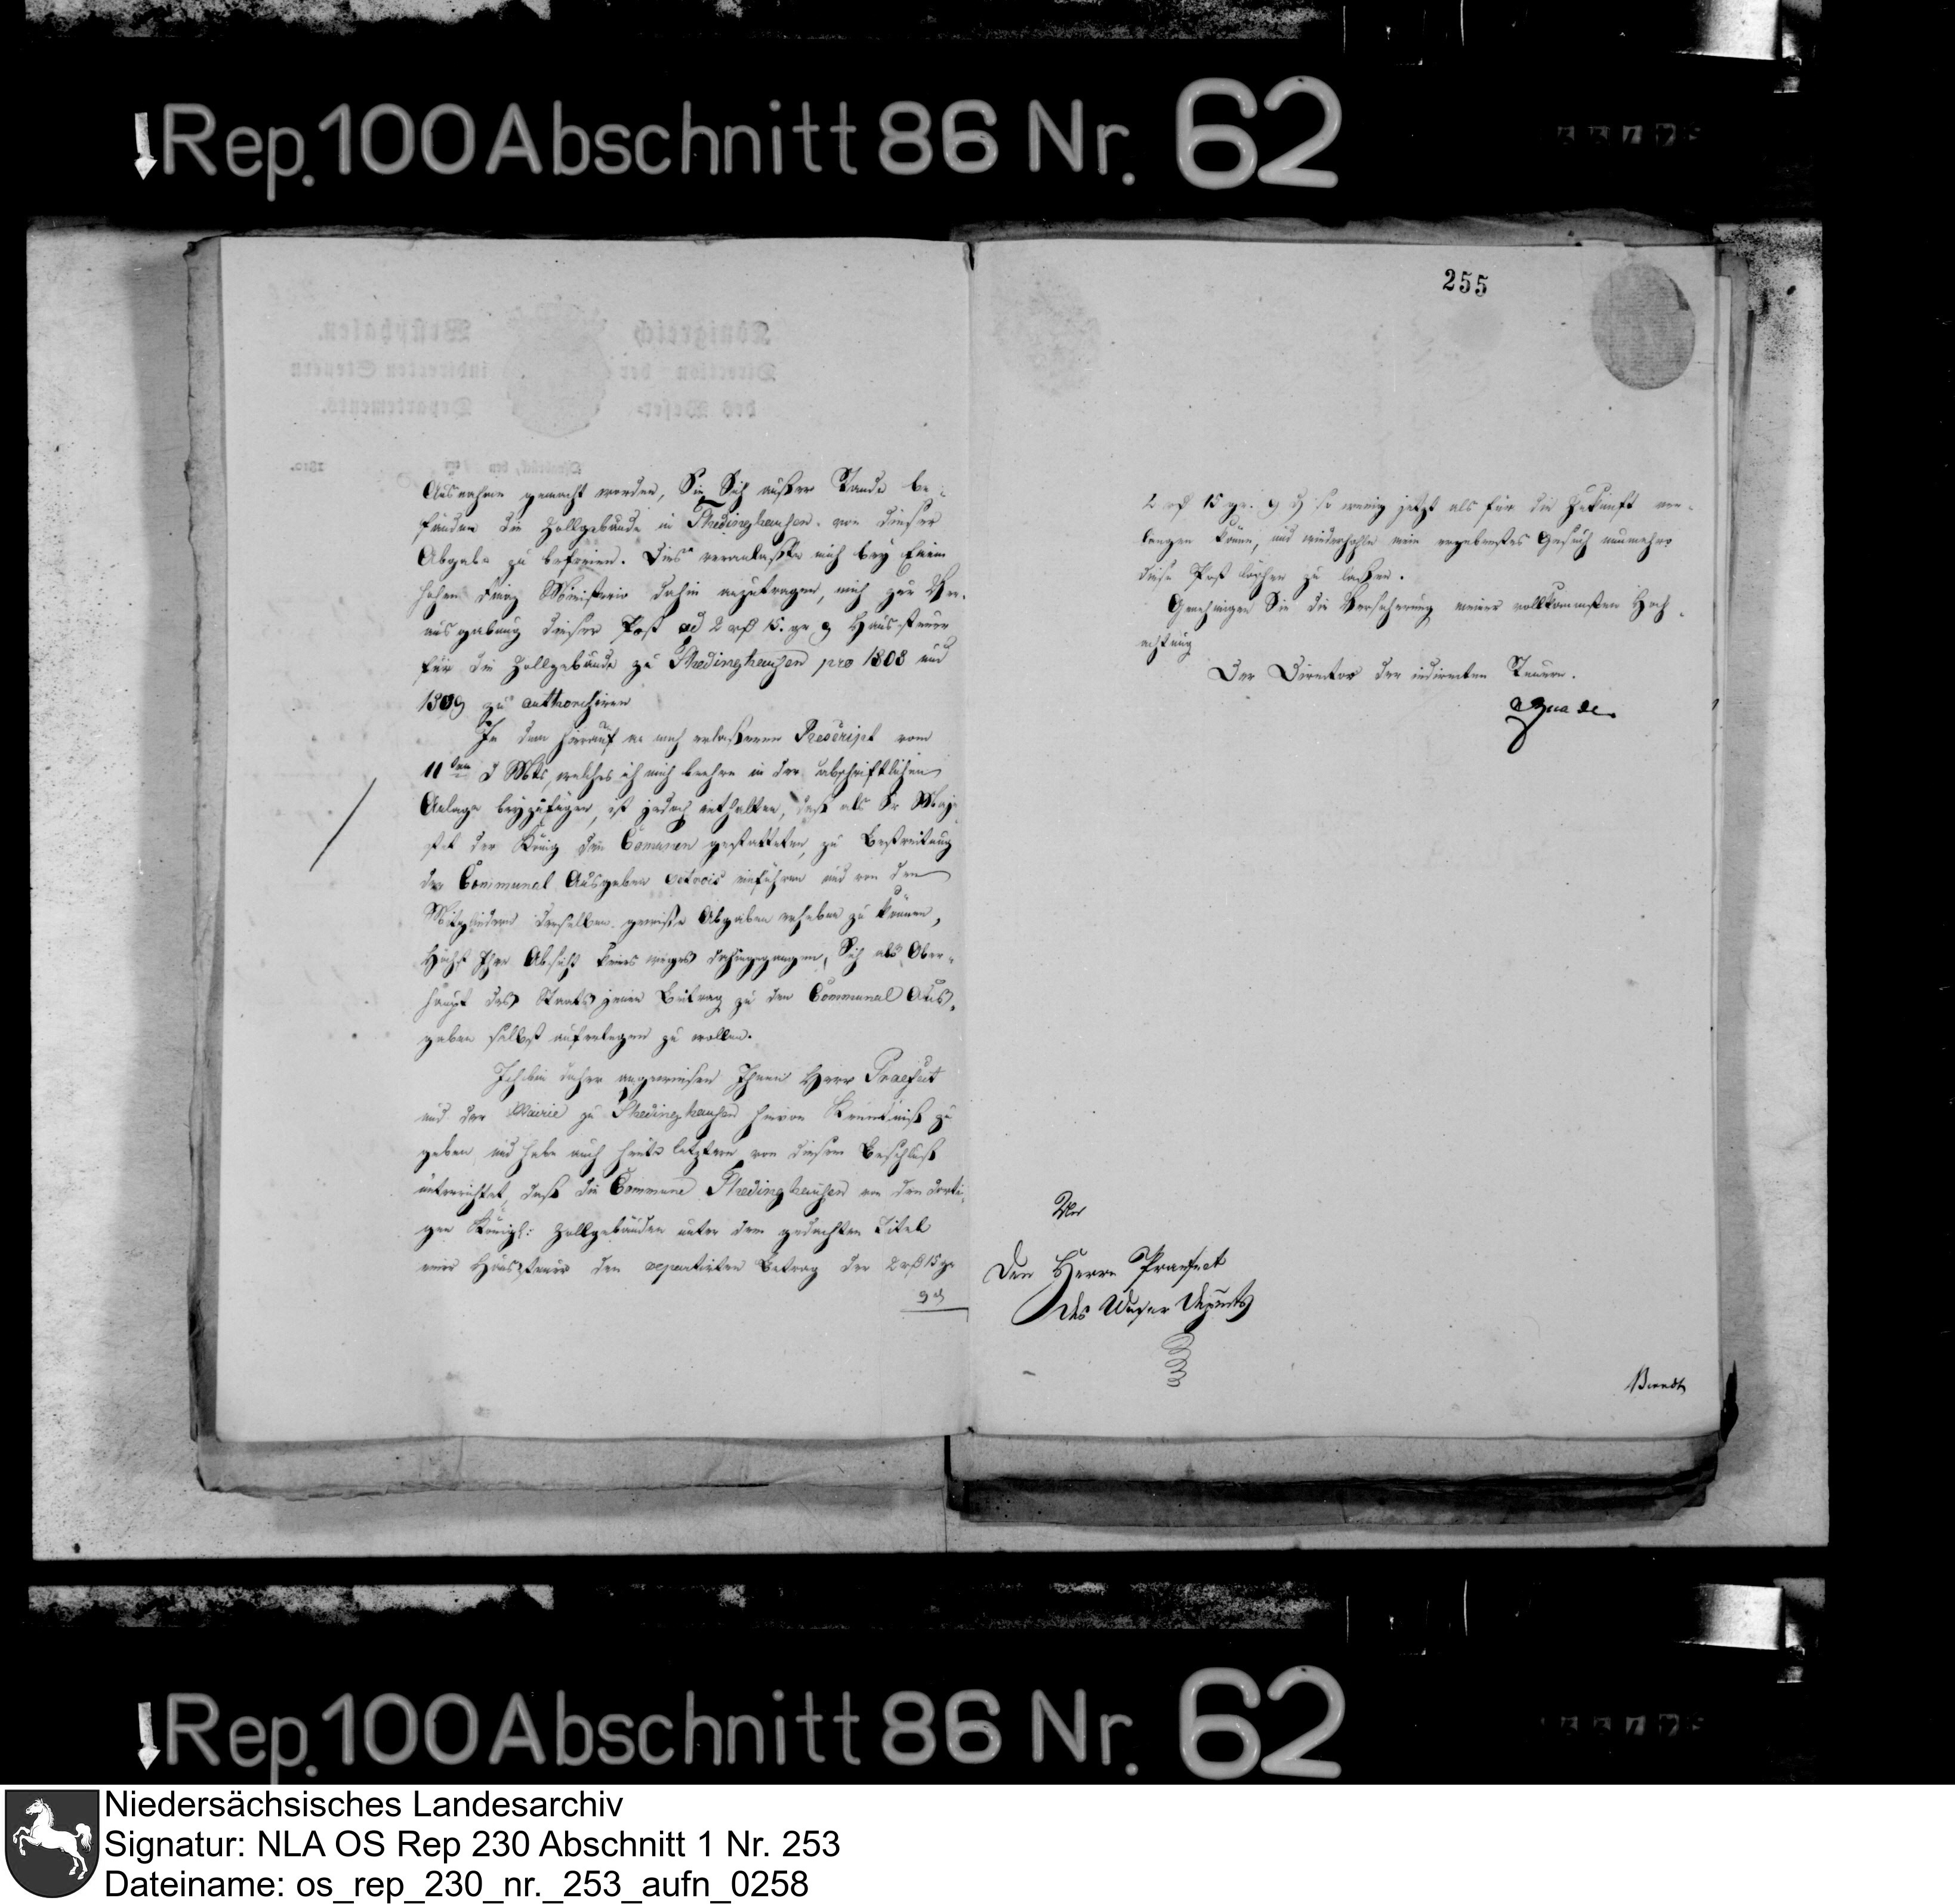 Rep. 100 Abschnitt 86 Nr. 62
255
Ausnahme gemacht werden, Sie Sich außer Stande be-
fänden die Zollgebäude in Thedinghausen von dieser
Abgabe zu befreien. Dies veranlaßte mich bey Einem
hohen Finanz Ministerio dahin anzutragen, mich zur Ver-
ausgabung dieser Post ad 2 rß 15. gr 9 Haussteuer
für die Zollgebäude zu Thedinghausen pro 1808 und
1809 zu authorisiren
In dem hierauf an mich erlaßenen Rescript vom
11ten d Mts, welches ich mich beehre in der abschriftlichen
Anlage beyzufügen, ist jedoch enthalten, daß als Sr Maje-
stät der König den Comunen gestatteten, zu Bestreitung
der Communal Ausgaben octrois einführen und von den
Mitgliedern derselben gewisse Abgaben erheben zu können,
Höchst Ihre Absicht keines weges dahingegangen, Sich als Ober-
haupt des Staats jenen Beitrag zu den Communal Aus-
gaben selbst auferlegen zu wollen.
Ich bin daher angewiesen Ihnen Herr Praefect
und der Mairie zu Thedinghausen hievon Kenntniß zu
geben und habe auch heute letztere von diesem Beschluß
unterrichtet, daß die Commune Thedinghausen von den dorti-
gen Königl: Zollgebäuden unter dem gedachten Titel
einer Haussteuer den repartirten Betrag der 2 rß 15 gr
9 d
2 rß 15 gr. 9 d so wenig jetzt als für die Zukunft ver-
langen könne, und wiederhohle mein ergebenstes Gesuch nunmehro
diese Post löschen zu laßen.
Genehmigen Sie die Versicherung meiner vollkommensten Hoch-
achtung
Der Director der indirecten Steuern.
An
Den Herrn Praefect
des Weser Departs
Rep. 100 Abschnitt 86 Nr. 62
Niedersächsisches Landesarchiv
Signatur: NLA OS Rep 230 Abschnitt 1 Nr. 253
Dateiname: os_rep_230_nr._253_aufn_0258